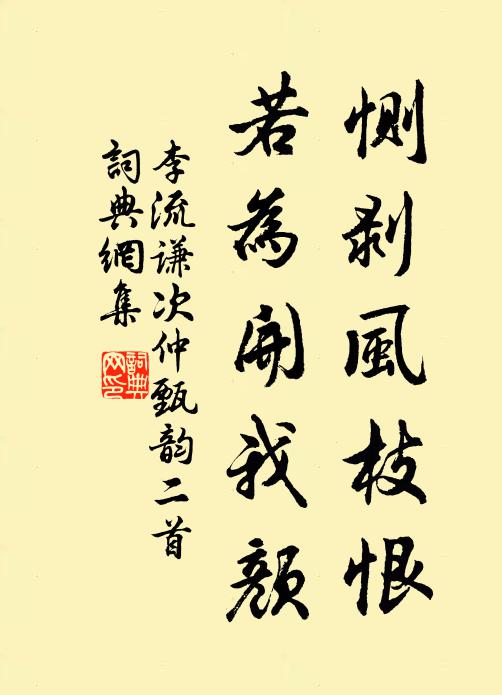 惻剥風枝恨
若為開我顏
李流謙次仲甄韵二首
詞典網集
詞典网印